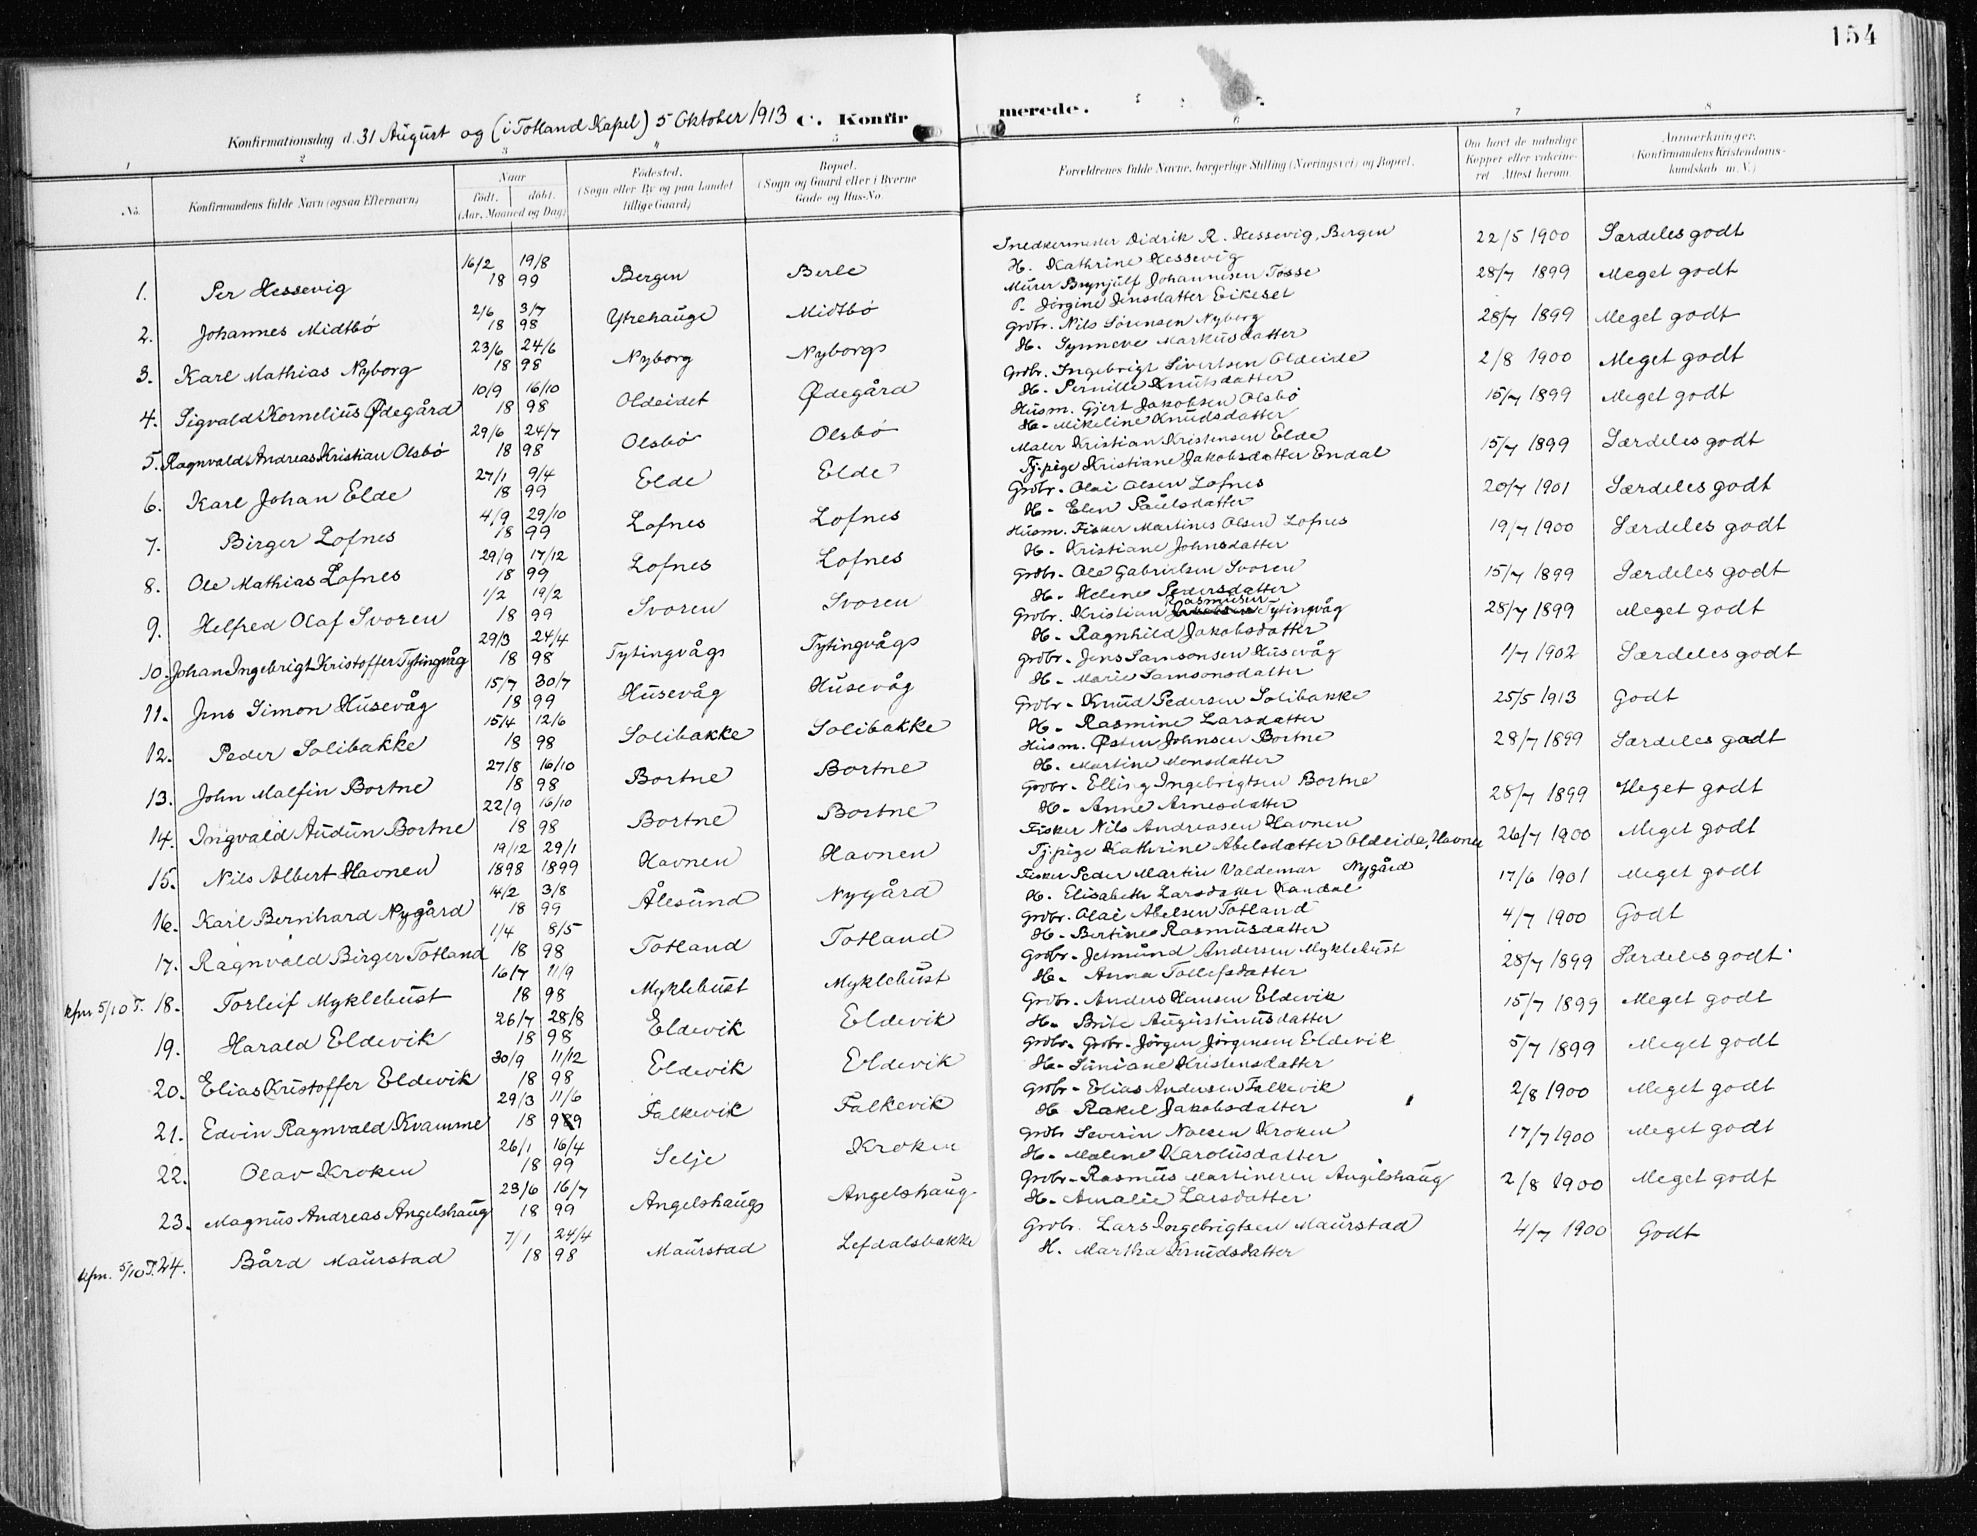 154
Konfirmationsdag d. 31 August og (i Totland Kapel) 5 Oktober 1913 C. Konfirmerede.
1 2 3 4 5 6 7 8
No. Konfirmandens fulde Navn (ogsaa Efternavn) Naar født. døbt. (Aar, Maaned og Dag) Fødested. (Sogn eller By og paa Landet tillige Gaard) Bopæl. (Sogn og Gaard eller i Byerne Gade og Hus-No. Forældrenes fulde Navne, borgerlige Stilling (Næringsvei) og Bopæl. Om havt de naturlige Kopper eller vakcineret. Attest herom. Anmærkninger. (Konfirmandens Kristendomskundskab m. V.)
1. Per Hessevig 16/2 19/8 1899 Bergen Berle Snedkermester Didrik R. Hessevig, Bergen 22/5 1900 Særdeles godt
H. Kathrine Hessevig
2. Johannes Midtbö 2/6 3/7 1898 Ytrehauge Midtbö Murer Brynjulf Johannesen Tosse 28/7 1899 Meget godt
P. Jörgine Jensdatter Eikeset
3. Karl Mathias Nyborg 23/6 24/6 1898 Nyborg Nyborg Grdbr. Nils Sörensen Nyborg 28/7 1899 Meget godt
H. Synneve Markusdatter
4. Sigvald Kornelius Ødegård 10/9 16/10 1898 Oldeidet Ødegård Grdbr. Ingebrigt Sivertsen Oldeide 2/8 1900 Meget godt
H. Pernille Knutsdatter
5. Ragnvald Andreas Kristian Olsbö 29/6 24/7 1898 Olsbö Olsbö Husm. Gjert Jakobsen Olsbö 15/7 1899 Meget godt
H. Mikeline Knudsdatter
6. Karl Johan Elde 27/1 9/4 1899 Elde Elde Maler Kristian Kristensen Elde 15/7 1899 Særdeles godt
Tj.pige Kristiane Jakobsdatter Endal
7. Birger Lofnes 4/9 29/10 1899 Lofnes Lofnes Grdbr. Olai Olsen Lofnes 20/7 1901 Særdeles godt
H. Elen Paulsdatter
8. Ole Mathias Lofnes 29/9 17/12 1899 Lofnes Lofnes Husm. Fisker Martines Olsen Lofnes 19/7 1900 Særdeles godt
H. Kristiane Johnsdatter
9. Helfred Olaf Svoren 1/2 19/2 1899 Svoren Svoren Grdbr. Ole Gabrielsen Svoren 15/7 1899 Særdeles godt
H. Helene Pedersdatter
10. Johan Ingebrigt Kristoffer Tytingvåg 29/3 24/4 1898 Tytingvåg Tytingvåg Grdbr. Kristian Rasmusen Tytingvåg 28/7 1899 Meget godt
H. Ragnhild Jakobsdatter
11. Jens Simon Husevåg 15/7 30/7 1899 Husevåg Husevåg Grdbr. Jens Samsonsen Husevåg 1/7 1902 Særdeles godt
H. Marie Samsonsdatter
12. Peder Solibakke 15/4 12/6 1898 Solibakke Solibakke Grdbr. Knud Pedersen Solibakke 25/5 1913 Godt
H. Rasmine Larsdatter
13. John Malfin Bortne 27/8 16/10 1898 Bortne Bortne Husm. Østen Johnsen Bortne 28/7 1899 Særdeles godt
H. Martine Monsdatter
14. Ingvald Audun Bortne 22/9 16/10 1898 Bortne Bortne Grdbr. Elling Ingebrigtsen Bortne 28/7 1899 Meget godt
H. Anne Arnesdatter
15. Nils Albert Havnen 19/12 1898 29/1 1899 Havnen Havnen Fisker Nils Andreasen Havnen 26/7 1900 Meget godt
Tj.pige Kathrine Abelsdatter Oldeide, Havnen
16. Karl Bernhard Nygård 14/2 3/8 1899 Ålesund Nygård Fisker Peder Martin Valdemar Nygård 17/6 1901 Meget godt
H. Elisabeth Larsdatter Kandal
17. Ragnvald Birger Totland 1/4 8/5 1898 Totland Totland Grdbr. Olai Abelsen Totland 4/7 1900 Godt
H. Bertine Rasmusdatter
kfm 5/10 T. 18. Torleif Myklebust 16/7 11/9 1898 Myklebust Myklebust Grdbr. Jetmund Andersen Myklebust 28/7 1899 Særdeles godt.
H. Anna Tollefsdatter
19. Harald Eldevik 26/7 28/8 1898 Eldevik Eldevik Grdbr. Anders Hansen Eldevik 15/7 1899 Meget godt
H. Brite Augustinusdatter
20. Elias Kristoffer Eldevik 30/9 11/12 1898 Eldevik Eldevik Grdbr. Grdbr. Jörgen Jörgensen Eldevik 5/7 1899 Meget godt
H. Siniane Kristensdatter
21. Edvin Ragnvald Kvamme 29/3 11/6 1899 Falkevik Falkevik Grdbr. Elias Andersen Falkevik 2/8 1900 Meget godt
H. Rakel Jakobsdatter
22. Olav Kroken 26/1 16/4 1899 Selje Kroken Grdbr. Severin Kroken 17/7 1900 Meget godt
H. Malene Karolusdatter
23. Magnus Andreas Angelshaug 23/6 16/7 1899 Angelshaug Angelshaug Grdbr. Rasmus Martinesen Angelshaug 2/8 1900 Meget godt
H. Amalie Larsdatter
kfm. 5/10 T. 24. Bård Maurstad 7/1 24/4 1898 Maurstad Lefdalsbakke Grdbr. Lars Ingebrigtsen Maurstad 4/7 1900 Godt
H. Martha Knudsdatter